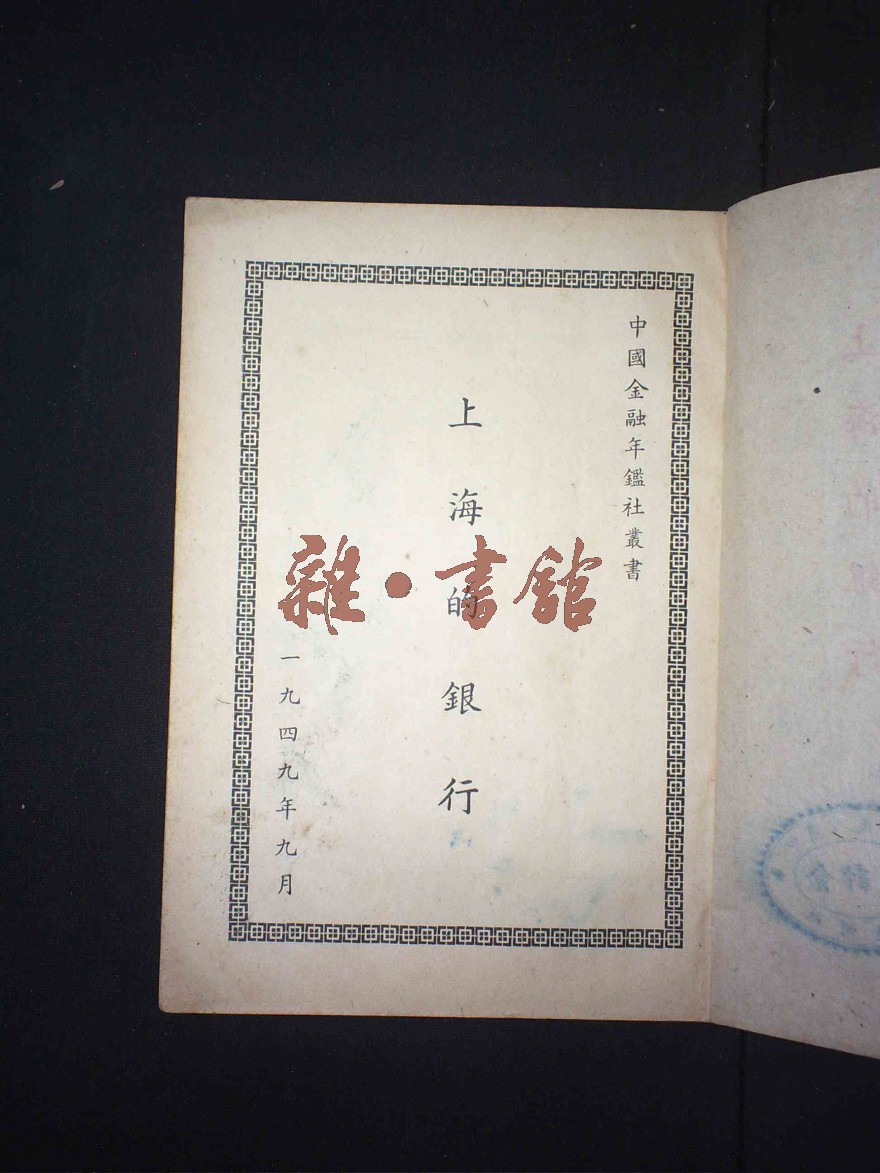 中國金融年鑑社叢書
上海的銀行
一九四九年九月
雜·書館